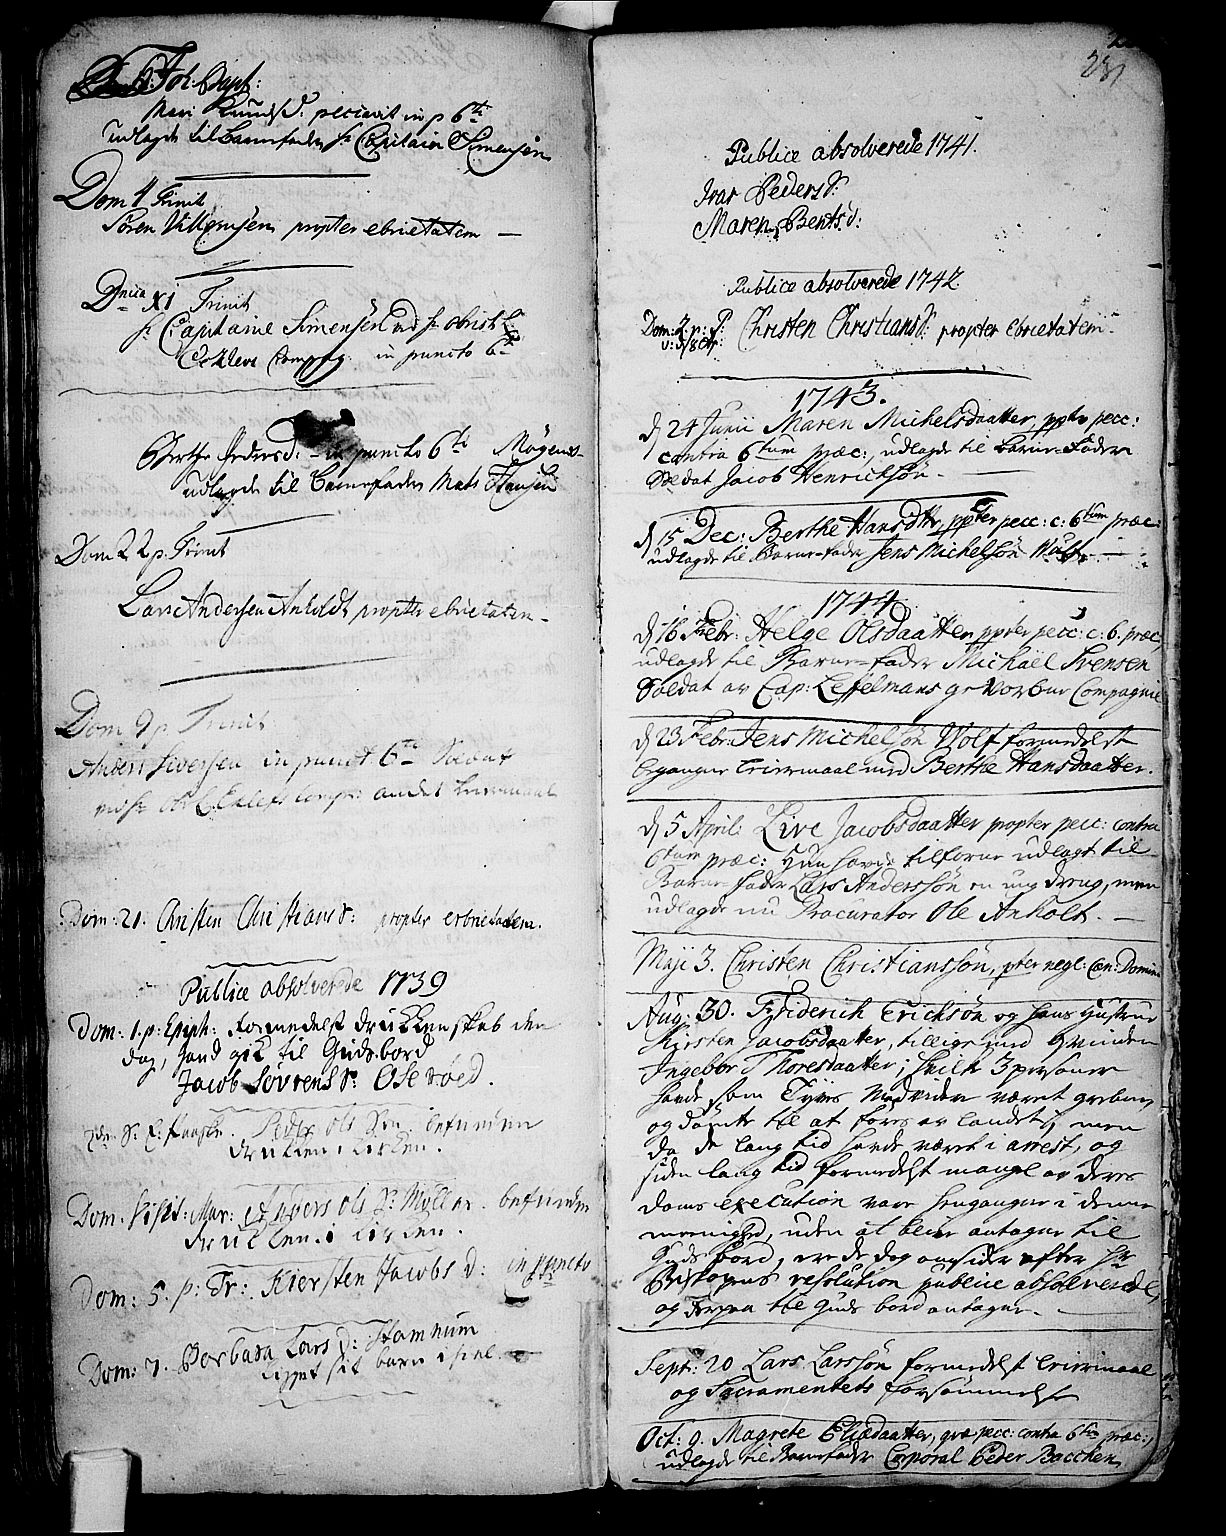 Joh: Bapt:
Mari Knudsd: peccavit in p 6ti
udlagde til Barnefader hr Capitain Simensen
Dom 4 Trinit
Sören Villomsen propter ebrietatem —
Dnica XI Trinit
hr Capitaine Simensen ved hr obrist L:
Compag: in puncto 6ti
Berthe Pedersd: in puncto 6ti
udlagde til Barnefader Mats Hansen
Dom 22 p. Trinit
Lars Andersen Anholdt propter ebrietatem —
Dom 9 p Trinit
Anders Siversen in punct 6ti Soldat
Comp: andet Leiermaal
Dom: 21. Christen Christians S: propter ebrietatem.
Publice absolverede 1739
Dom: 1. p: Epiph: formedelst drukkenskab den
dag, hand gik til Guds bord
Jacob Sövrens S: Oseröed.
Peder Ols Sön befunden
drukken i kirken.
Dom. Visit: Mar: Anders Ols S: Möller. befunden
drukken i kirken.
Dom: 5. p: Tr: Kiersten Jacobs d: in puncto
Dom: 7. Barbara Lars d: Hamnum
ligget sit barn ihiel. —
231
Publice absolverede 1741.
Ivar Peders S:
Maren Bentsd:
Publice absolverede 1742
Dom: 3. p: P: Christen Christians S: propter Ebrietatem —
1743.
d 24 Junii Maren Michelsdaatter, ppter pecc:
contra 6tum præc:, udlagde til Barne-Fader
Soldat Jacob Henrichsön —
d 15 Dec: Berthe Hansdttr, ppter pecc: c: 6tum præc:
udlagde til Barne-fader Jens Michelsön Wulf. —
1744
d 16 Febr: Helge Olsdaatter ppter pecc: c: 6. præc,
udlagde til Barne-fader Michaël Svensen
Soldat av Cap: Leffelmans gevorbne Compagnie
d 23 Febr: Jens Michelsön Wolf formedelst
begangne Leiermaal med Berthe Hansdaatter.
d 5 April: Live Jacobsdaatter propter pecc: contra
6tum præc: Hun havde tilforne udlagt til
Barne-fader Lars Anderssön en ung dreng, men
udlagde nu Procurator Ole Anholt. —
Maji 3. Christen Christianssön, pter negl: Cæn: Domini
Aug: 30. Friderich Erichsön og hans Hustrue
Kirsten Jacobsdaatter, tillige med Qvinden
Ingebor Thoresdaatter; hvilke 3 personer
havde som Tyvs Medvidere været grebne,
og dömte til at föres av landet, men
da de lang tid havde været i arrest, og
siden lang tid formedelst mangel av deres
doms execution vare hengangne i denne
meenighed, uden at blive antagne til
Guds bord, ere de dog omsider efter Hr
Biskopens resolution publice absolverede,
og derpaa til Guds bord antagne. —
Sept: 20 Lars Larssön formedelst Leiermaal
og Sacramentets forsömmelse
Oct: 9. Magrete Eliædaatter, qvæ pecc: contra 6tum præc:,
udlagde til Barnefader Corporal Peder Bacchen